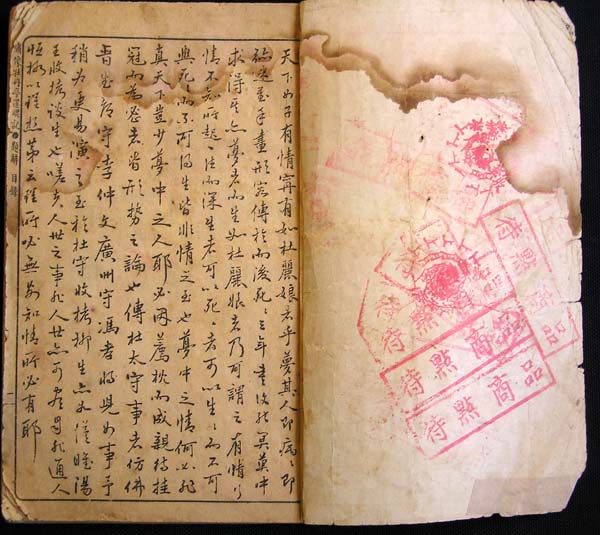 天下女子有情寧有如杜麗娘者乎夢其人即病〻即
彌連至手畫形容傳於而後死〻三年矣復能冥莫中
求得其所夢者而生如杜麗娘者乃可謂之有情
情不知所起一往而深生者可以死〻者可以生〻而不可
與死〻而不可復生皆非情之至也夢中之情何必非
真天下豈少夢中之人耶必因薦枕而成親待挂
冠而為密者皆形勢之論也傳杜太守事者仿佛
晉武都守李仲文廣州守馮孝將兒女事予
稍為更易演之至於杜守收拷柳生亦如漢睢陽
王收拷談生也嗟夫人世之事非人世所可盡自非通人
恒以理相格第云理所必無安知情所必有耶
繪像牡丹亭還魂記
題辭 目錄
待點商品
待點商品
待點